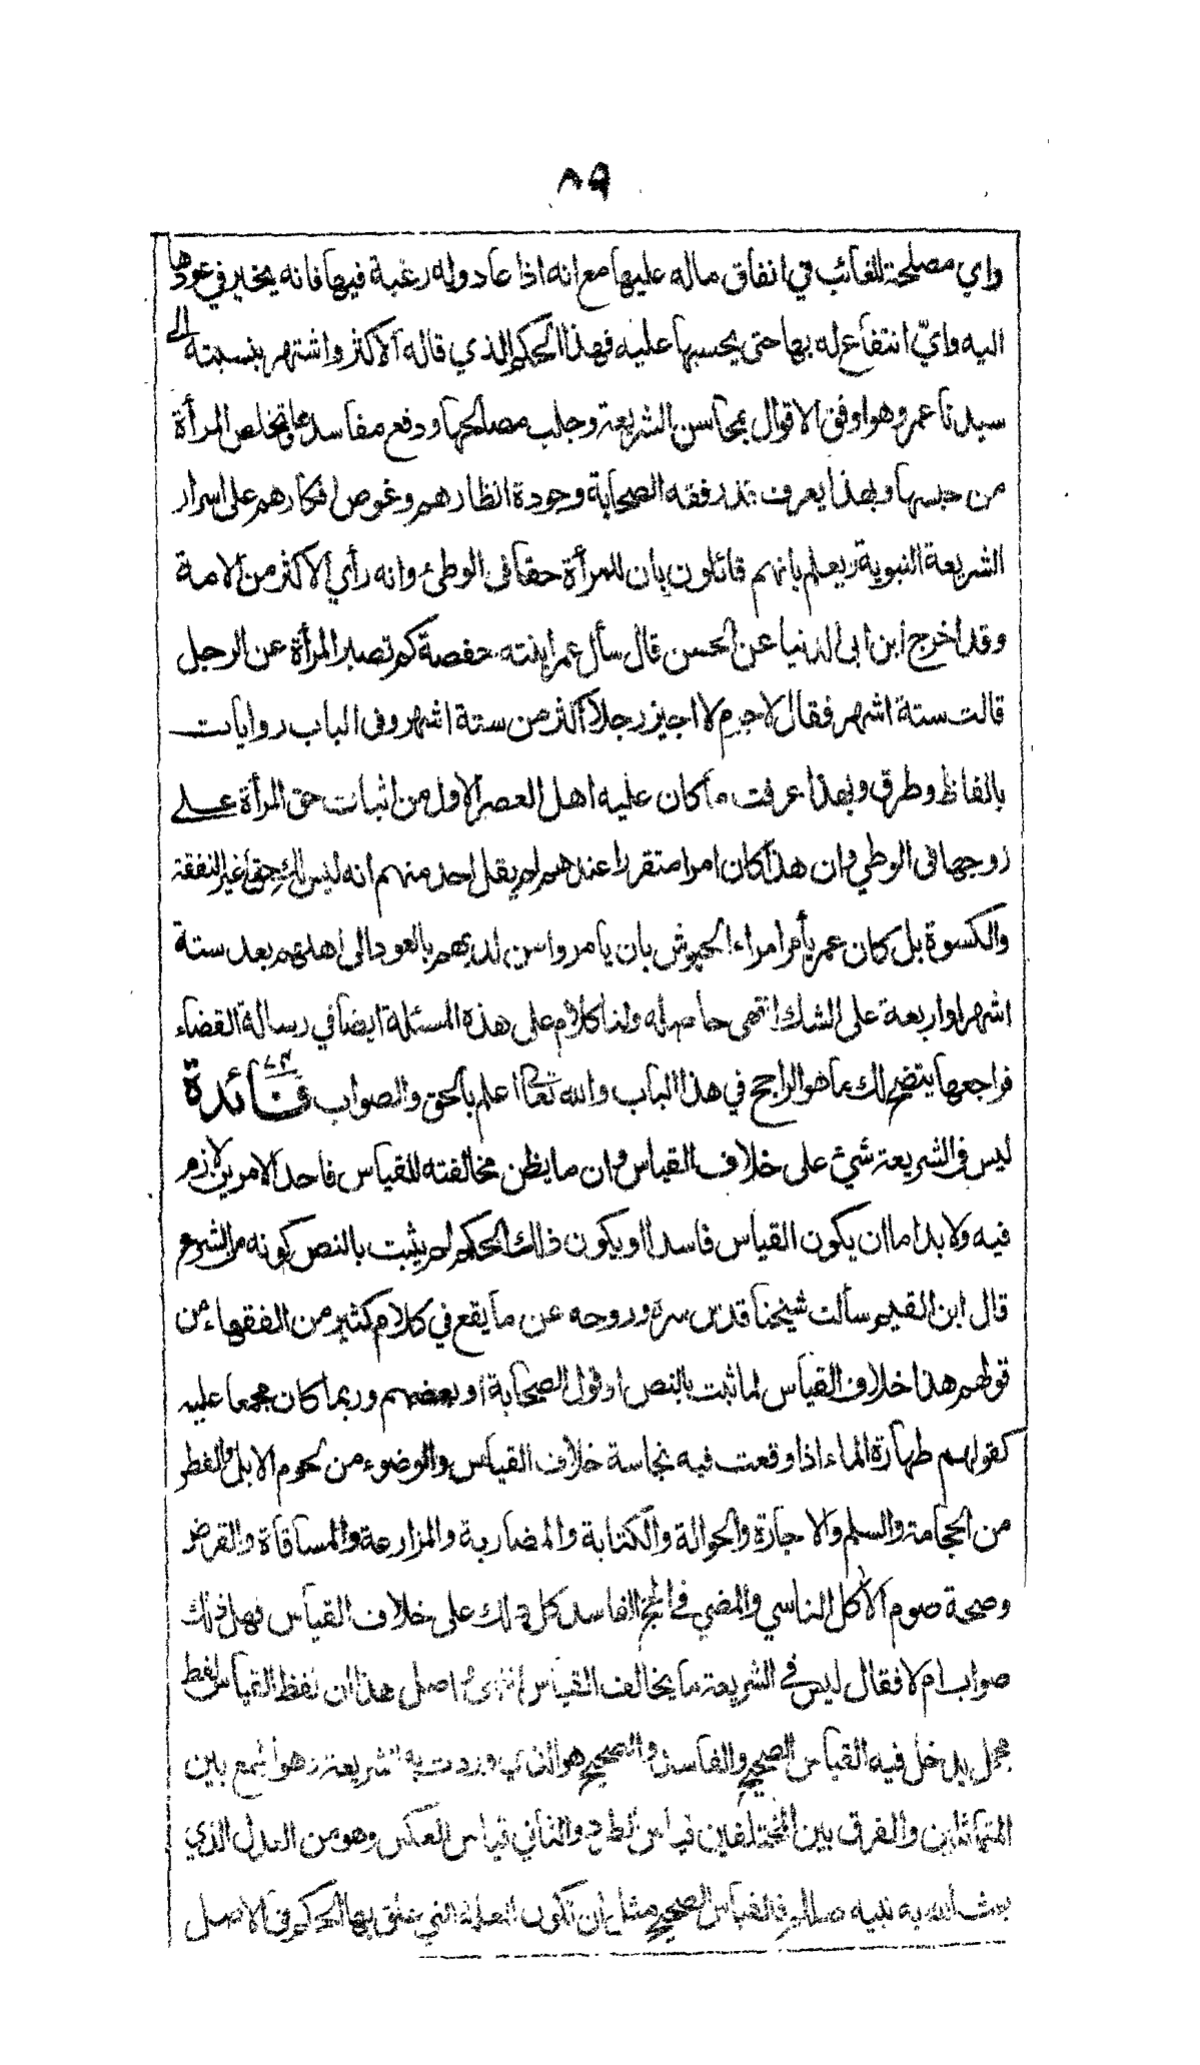 ٨٩
واي مصلحة للغائب في انفاق ماله عليها مع انه اذا عاد وله رغبة فيها فانه يخير في عودها
اليه وايّ انتفاع له بها حتى يحسبها عليه فهذا الحكم الذي قاله الاكثر واشتهر بنسبته الى
سيدنا عمر وهو اوفق الاقوال بمحاسن الشريعة وجلب مصالحها ودفع مفاسدها وتخلص المرأة
من حبسها وبهذا يعرف قدر فقه الصحابة وجودة انظارهم وغوص افكارهم على اسرار
الشريعة النبوية ويعلم بانهم قائلون بان للمرأة حقا فى الوطئ وانه رأي الاكثر من الامة
وقد اخرج ابن ابى الدنيا عن الحسن قال سأل عمر ابنته حفصة كم تصبر المرأة عن الرجل
قالت ستة اشهر فقال لا جرم لا اجيز رجلا اكثر من ستة اشهر وفى الباب روايات
بالفاظ وطرق وبهذا عرفت ما كان عليه اهل العصر الاول من اثبات حق المرأة على
زوجها فى الوطي وان هذا كان امرا متقررا عندهم لم يقل احد منهم انه ليس لك حق غير النفقة
والكسوة بل كان عمر يأمر امراء الجيوش بان يامروا من لديهم بالعود الى اهلهم بعد ستة
اشهر او اربعة على الشك انتهى حاصله ولنا كلام على هذه المسئلة ايضا في رسالة القضاء
فراجعها يتضح لك ما هو الراجح في هذا الباب والله تعالى اعلم بالحق والصواب فائدة
ليس فى الشريعة شئ على خلاف القياس وان ما يظن مخالفته للقياس فاحد الامرين لازم
فيه ولا بد اما ان يكون القياس فاسدا او يكون ذلك الحكم لم يثبت بالنص كونه من الشرع
قال ابن القيم سألت شيخنا قدس سره وروحه عن ما يقع في كلام كثير من الفقهاء من
قولهم هذا خلاف القياس لما ثبت بالنص او قول الصحابة او بعضهم وربما كان مجمعا عليه
كقولهم طهارة الماء اذا وقعت فيه نجاسة خلاف القياس والوضوء من لحوم الابل والفطر
من الحجامة والسلم والاجارة والحوالة والكتابة والمضاربة والمزارعة والمساقاة والقرض
وصحة صوم الاكل الناسي والمضي في الحج الفاسد كل ذلك على خلاف القياس فهل ذلك
صواب ام لا فقال ليس في الشريعة ما يخالف القياس انتهى واصل هذا ان لفظ القياس لفظ
مجمل يدخل فيه القياس الصحيح والفاسد والصحيح هو الذي وردت به الشريعة وهو الجمع بين
المتماثلين والفرق بين المختلفين قياس الطرد والثاني قياس العكس وهو من العدل الذي
بعث الله به نبيه صلالم فالقياس الصحيح مثل ان تكون العلة التي علق بها الحكم فى الاصل